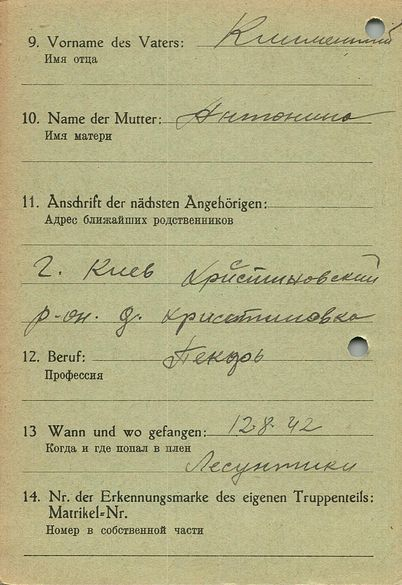 9. Vorname des Vaters: Климентий
Имя отца
10. Name der Mutter: Антонина
Имя матери
11. Anschrift der nächsten Angehörigen:
Адрес ближайших родственников
г. Киев Христиновский
р-он. д. Христиновка
12. Beruf: Пекарь
Профессия
13 Wann und wo gefangen: 12.8.42
Когда и где попал в плен
14. Nr. der Erkennungsmarke des eigenen Truppenteils:
Matrikel=Nr.
Номер в собственной части